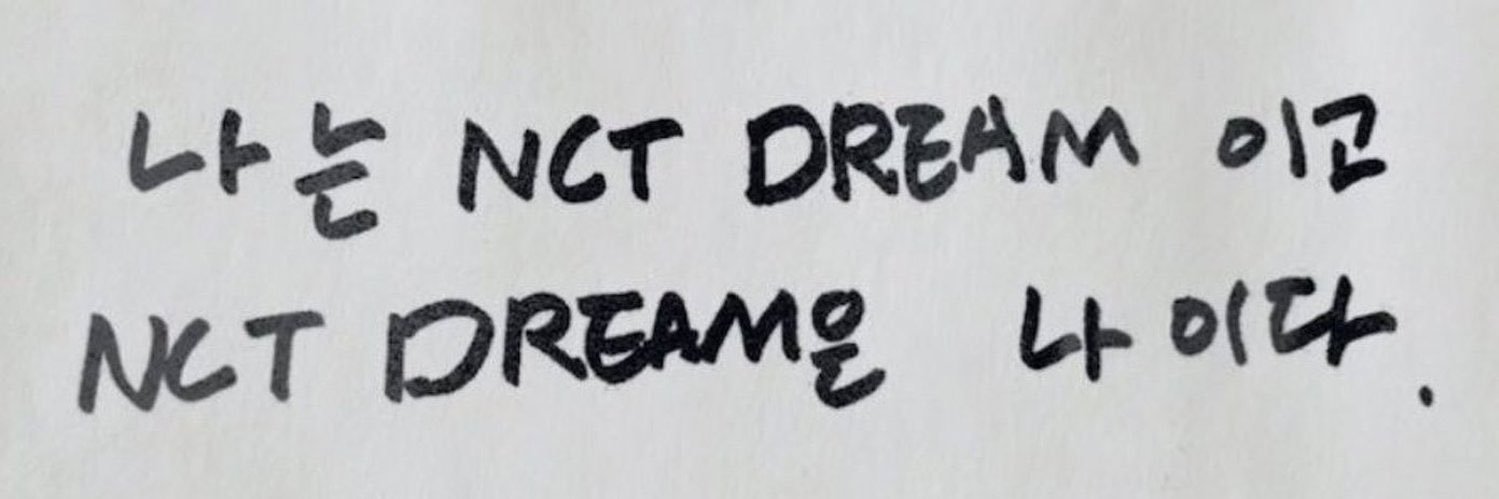 나는 NCT DREAM 이고
NCT DREAM은 나 이다.